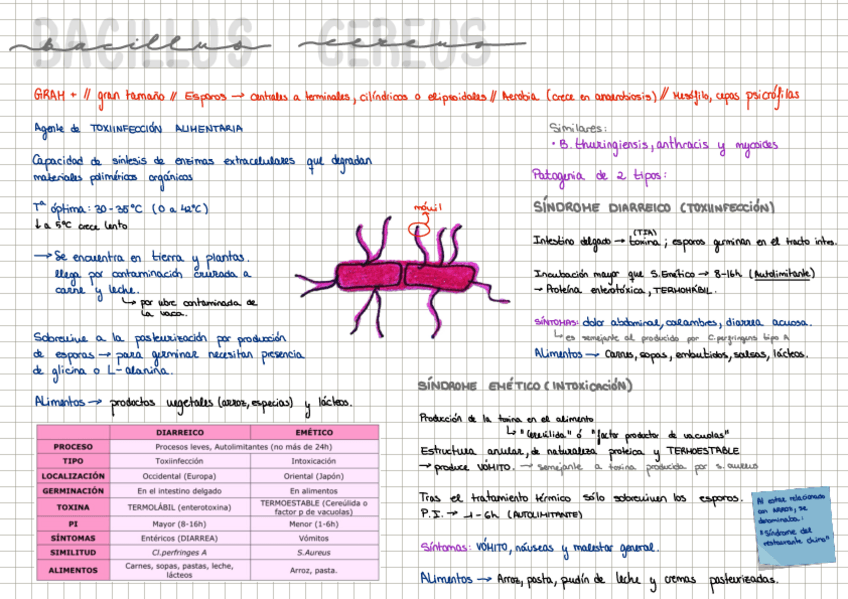 BACILLUS CEREUS
bacillus cereus
GRAM + // gran tamaño // Esporos → centrales a terminales, cilíndricos o elipsoidales // Aerobia (crece en anaerobiosis) // Mesófilo, cepas psicrófilas
Agente de TOXIINFECCIÓN ALIMENTARIA
Capacidad de síntesis de enzimas extracelulares que degradan
materiales poliméricos orgánicos
Tª óptima: 30-35ºC (0 a 42ºC)
↓ a 5ºC crece lento
→ Se encuentra en tierra y plantas.
llega por contaminación cruzada a
carne y leche.
↳ por ubre contaminada de
la vaca.
Sobrevive a la pasteurización por producción
de esporas → para germinar necesitan presencia
de glicina o L-alanina.
Alimentos → productos vegetales (arroz, especias) y lácteos.
móvil
Similares:
· B. thuringiensis, anthracis y mycoides
Patogenia de 2 tipos:
SÍNDROME DIARREICO (TOXIINFECCIÓN)
(TIA)
Intestino delgado → toxina ; esporos germinan en el tracto intes.
Incubación mayor que S.Emético → 8-16h (Autolimitante)
→ Proteína enterotóxica, TERMOLÁBIL.
SÍNTOMAS: dolor abdominal, calambres, diarrea acuosa.
↳ es semejante al producido por C.perfringens tipo A
Alimentos → Carnes, sopas, embutidos, salsas, lácteos.
SÍNDROME EMÉTICO (INTOXICACIÓN)
Producción de la toxina en el alimento
↳ "Cereúlida" ó "factor productor de vacuolas"
Estructura anular, de naturaleza proteica y TERMOESTABLE
→ produce VÓMITO. → semejante a toxina producida por S. aureus
Tras el tratamiento térmico sólo sobreviven los esporos.
P.I. → 1-6h (AUTOLIMITANTE)
Síntomas: VÓMITO, náuseas y malestar general.
Alimentos → Arroz, pasta, pudín de leche y cremas pasteurizadas.
Al estar relacionado
con ARROZ, se
denominaba:
"Síndrome del
restaurante chino"
DIARREICO EMÉTICO
PROCESO Procesos leves, Autolimitantes (no más de 24h)
TIPO Toxiinfección Intoxicación
LOCALIZACIÓN Occidental (Europa) Oriental (Japón)
GERMINACIÓN En el intestino delgado En alimentos
TOXINA TERMOLÁBIL (enterotoxina) TERMOESTABLE (Cereúlida o
factor p de vacuolas)
PI Mayor (8-16h) Menor (1-6h)
SÍNTOMAS Entéricos (DIARREA) Vómitos
SIMILITUD Cl.perfringes A S.Aureus
ALIMENTOS Carnes, sopas, pastas, leche,
lácteos Arroz, pasta.